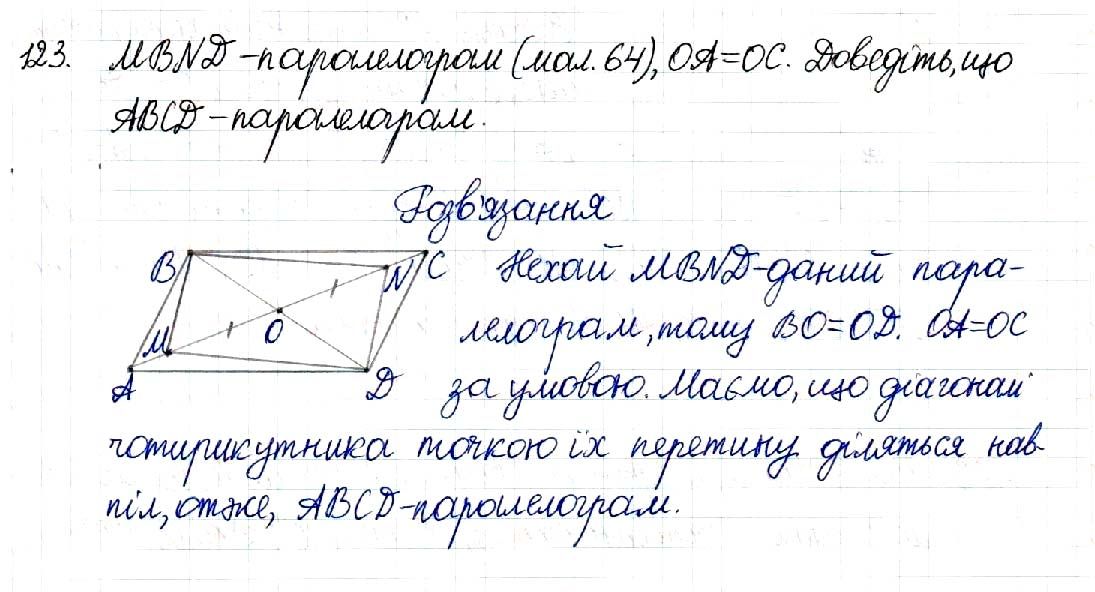 123. MBND – паралелограм (мал. 64), OA = OC. Доведіть, що
ABCD – паралелограм.
Розв'язання
B
N
C
M
O
A
D
Нехай MBND – даний пара-
лелограм, тому BO = OD. OA = OC
за умовою. Маємо, що діагоналі
чотирикутника точкою їх перетину діляться нав-
піл, отже, ABCD – паралелограм.